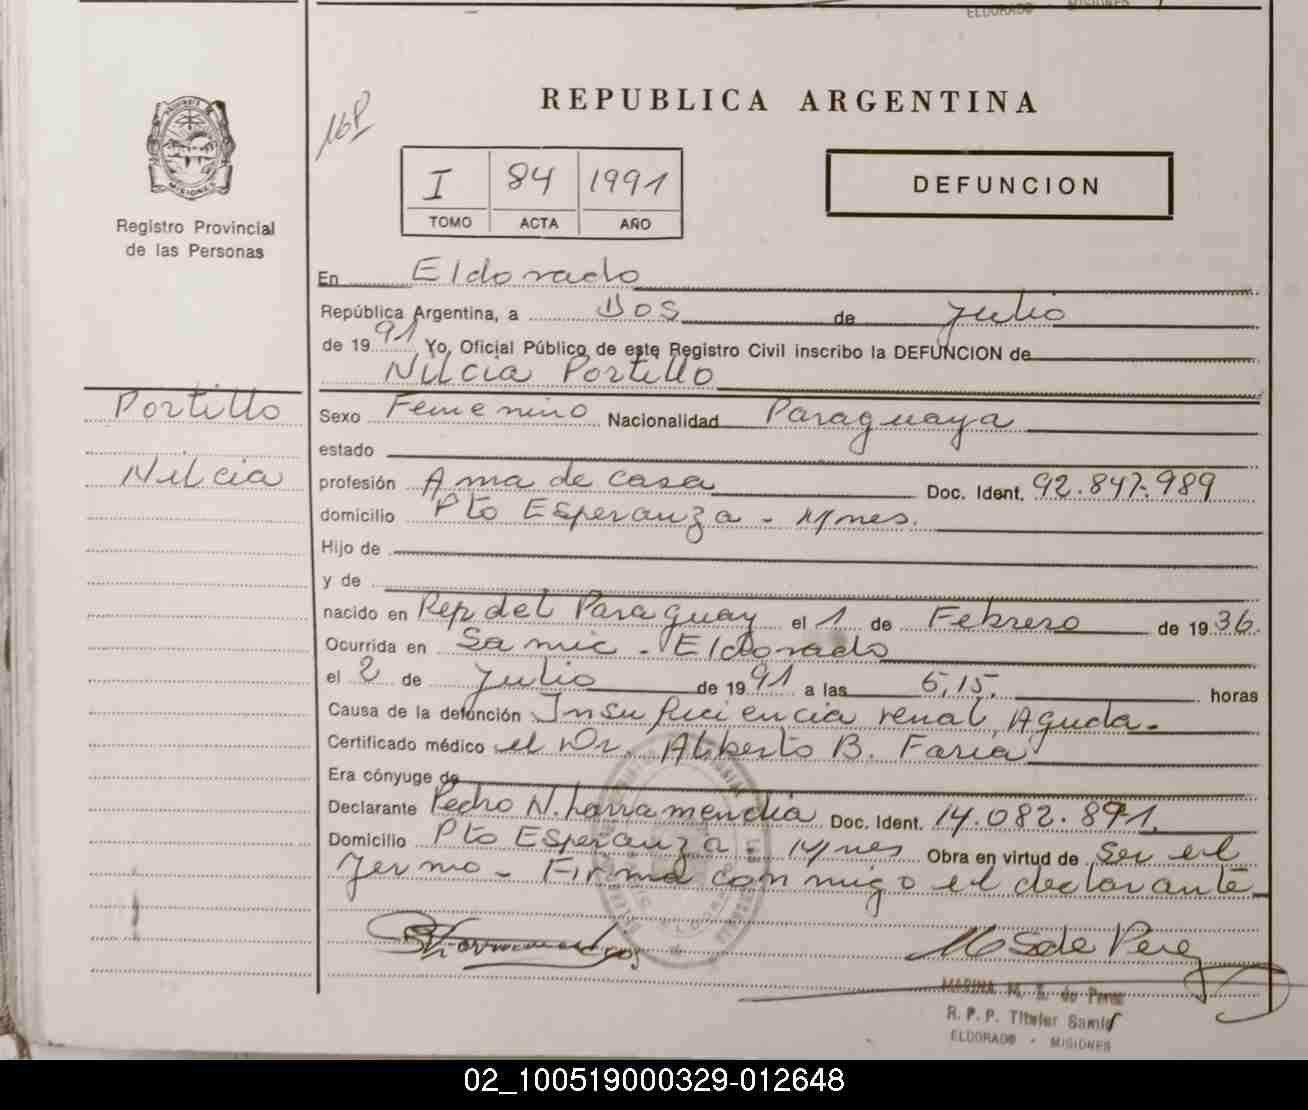 ELDORADO - MISIONES
REPUBLICA ARGENTINA
I 84 1991
TOMO ACTA AÑO
DEFUNCION
MISIONES
Registro Provincial
de las Personas
En Eldorado
República Argentina, a Dos de Julio
de 1991 Yo, Oficial Público de este Registro Civil inscribo la DEFUNCION de
Nilcia Portillo
Portillo
Nilcia
Sexo Femenino Nacionalidad Paraguaya
estado
profesión Ama de casa Doc. Ident. 92.847.989
domicilio Pto Esperanza - Mnes.
Hijo de
y de
nacido en Rep del Paraguay el 1 de Febrero de 1936.
Ocurrida en Samic - Eldorado
el 2 de Julio de 1991 a las 6,15. horas
Causa de la defunción Insuficiencia renal Aguda.
Certificado médico el Dr. Alberto B. Faria
Era cónyuge de
Declarante Pedro N. Larramendia Doc. Ident. 14.082.891.
Domicilio Pto Esperanza - Mnes Obra en virtud de Ser el
Yerno - Firma conmigo el declarante
M S de Perez
MARINA M. S. de Perez
R. P. P. Titular Samic
ELDORADO - MISIONES
02_100519000329-012648